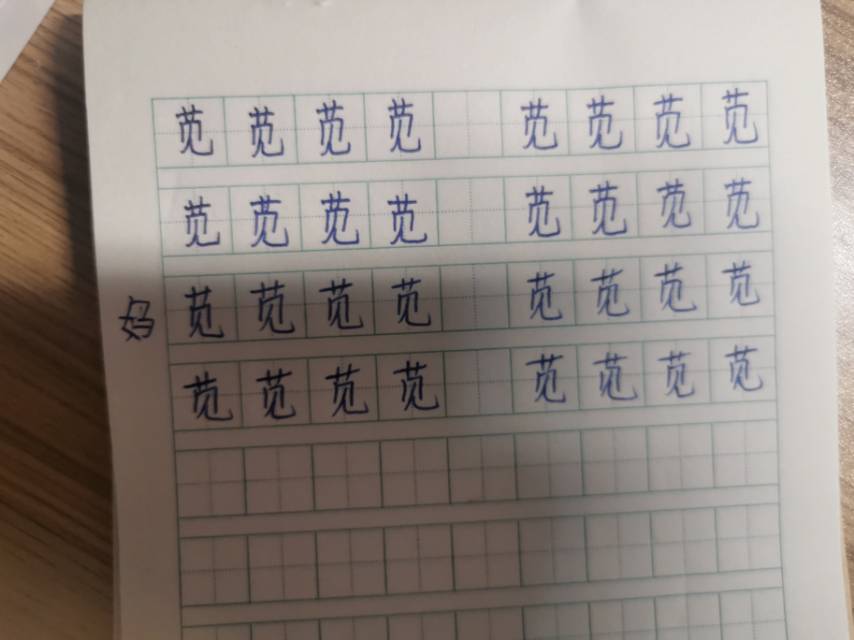 苋苋苋苋 苋苋苋苋
苋苋苋苋 苋苋苋苋
妈 苋苋苋苋 苋苋苋苋
苋苋苋苋 苋苋苋苋